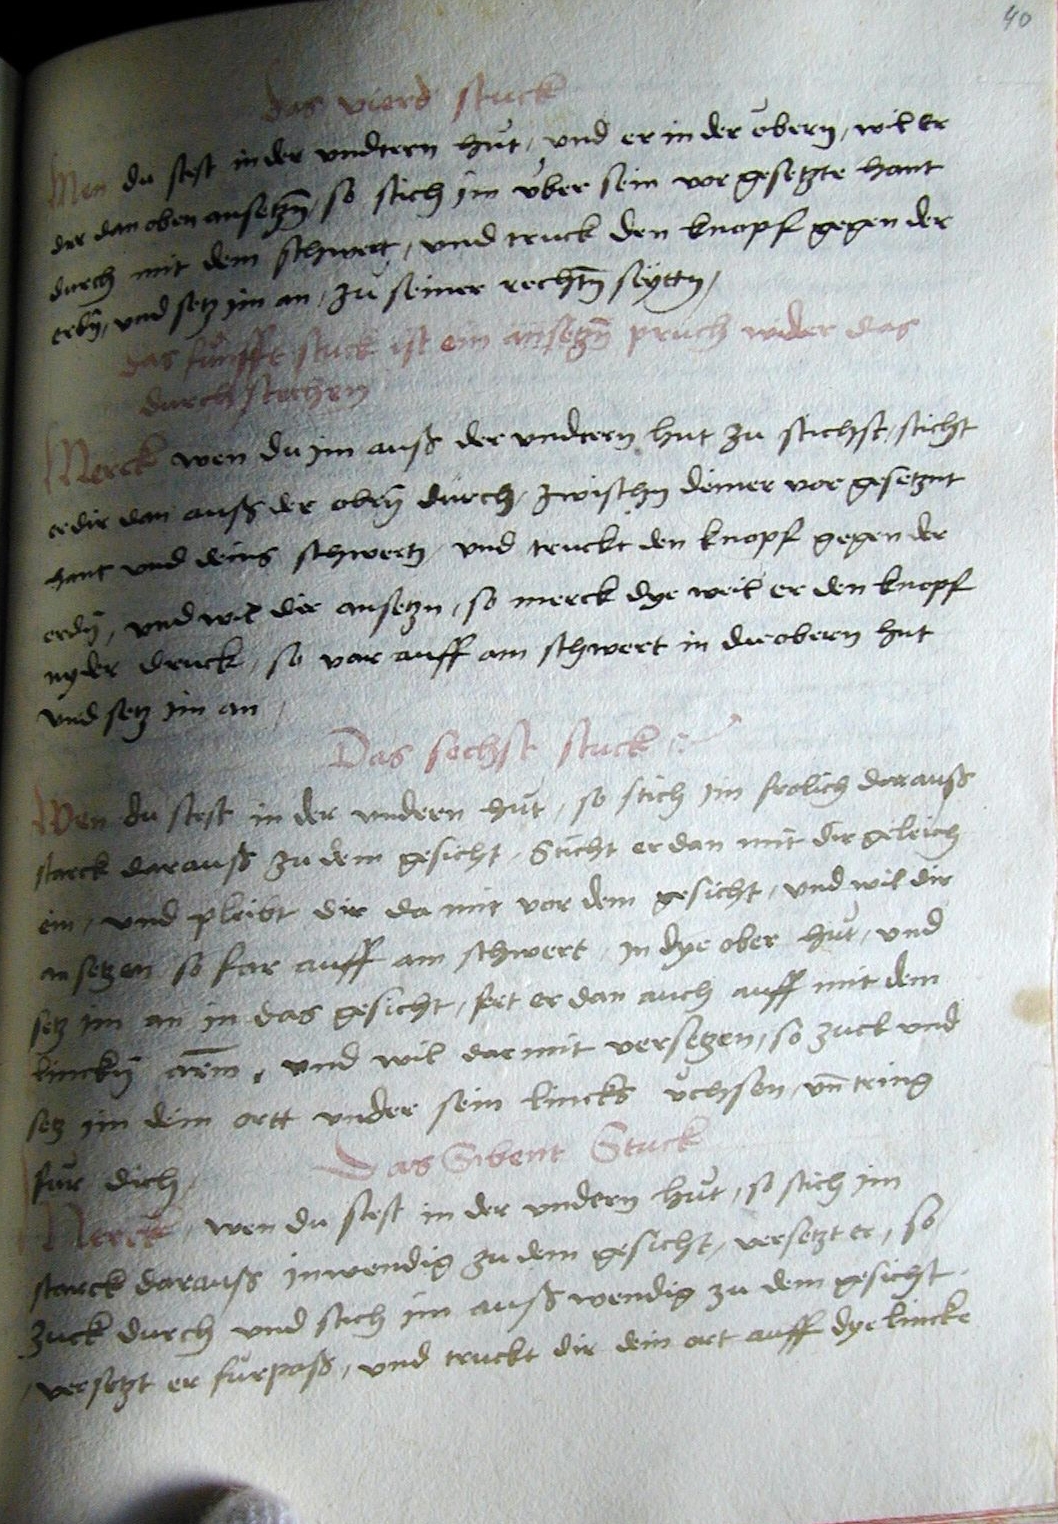 40
das vierd stuck
Wen du stest in der vndtern hůt / vnd er in der obern / wil er
dir dan oben ansetzn̄ so stich im vber sein vor gesetzte hant
durch mit dem schwert / vnd truck den knopf gegen der
erdn̄ / vnd setz im an / zů seiner rechtn̄ seyttn /
das fünfft stuck ist ein an setzn̄ pruch wider das
durch stechen
Merck wen du im auß der vndtern hut zu stichst / sticht
er dir dan auß der obern̄ durch / zwischn deiner vor gesetznt
hant vnd deins schwertz / vnd truckt den knopf gegen der
erdn̄ / vnd wil dir ansetzn / so merck dye weil er den knopf
nyder druck / so var auff am schwert in die obern hut
vnd setz im an /
Das sechst stuck
Wen du stest in der vndern hůt / so stich im frolich dorauß
starck darauß zu dem gesicht / Sticht er dan mit dir geleich
ein / vnd pleibt dir da mit vor dem gesicht / vnd wil dir
an setzen so far auff am schwert / in dye ober hůt / vnd
setz im an in das gesicht / fert er dan auch auff mit dem
linckn̄ arm / vnd wil dar mit versetzen / so zuck vnd
setz im dein ortt vnder sein lincks v̊chsen / vn̄ tring
für dich /
Das Sibent Stuck
Merck / wen du stest in der vndern hůt / so stich im
starck darauß inwendig zu dem gesicht / versetzt er / so
zuck durch vnd stich im auß wendig zu dem gesicht /
/ versetzt er fürpaß / vnd truckt dir dein ort auff dye lincke